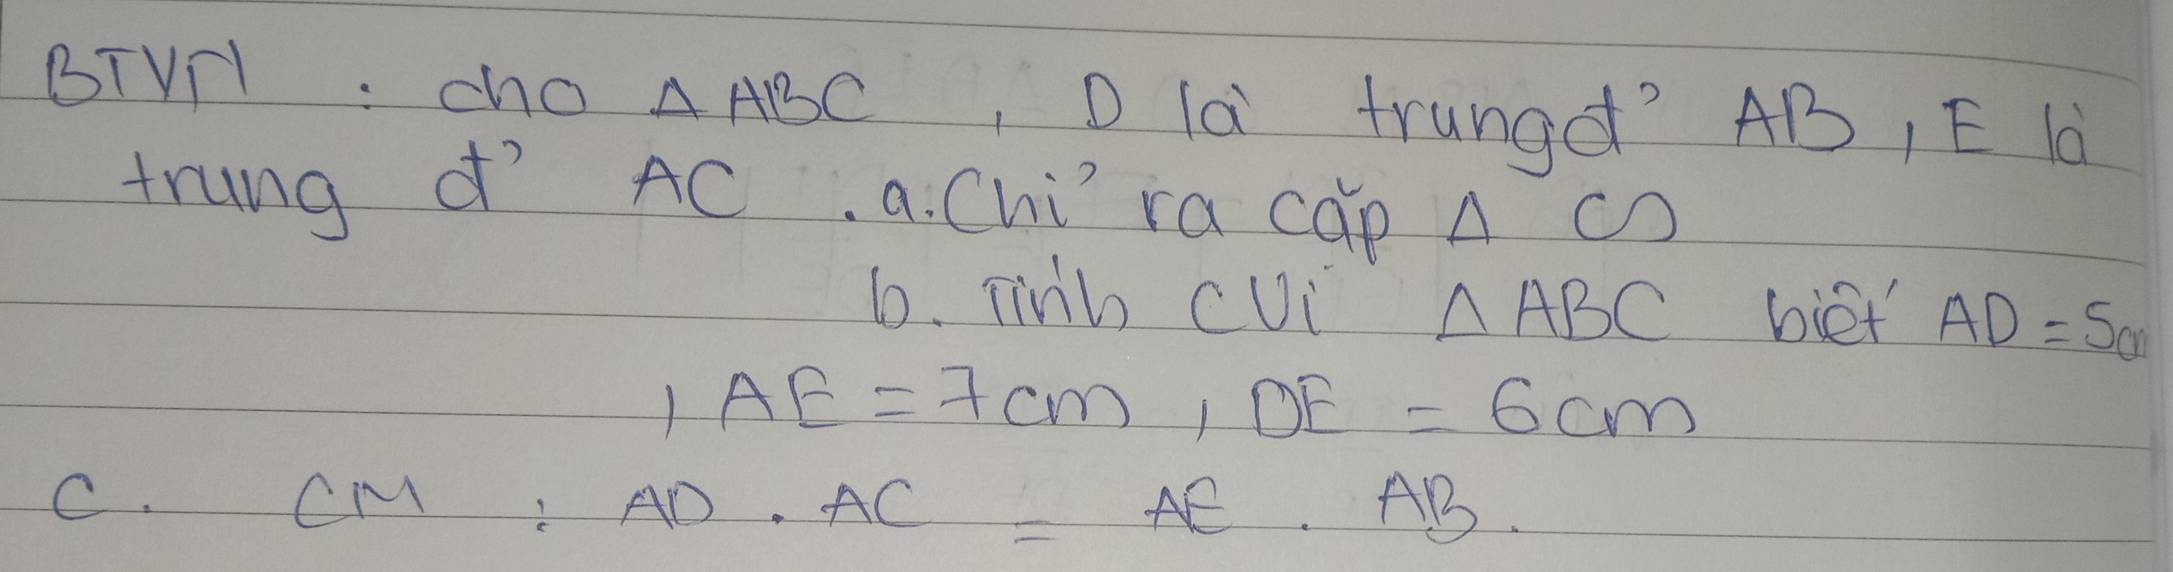 BTVN : cho Δ ABC , D là trung đ' AB , E là
trung đ' AC . a. Chỉ ra cặp Δ ∽
b. Tính CVi Δ ABC biết AD = 5cm
, AE = 7cm , DE = 6cm
C. CM : AD . AC = AE . AB .